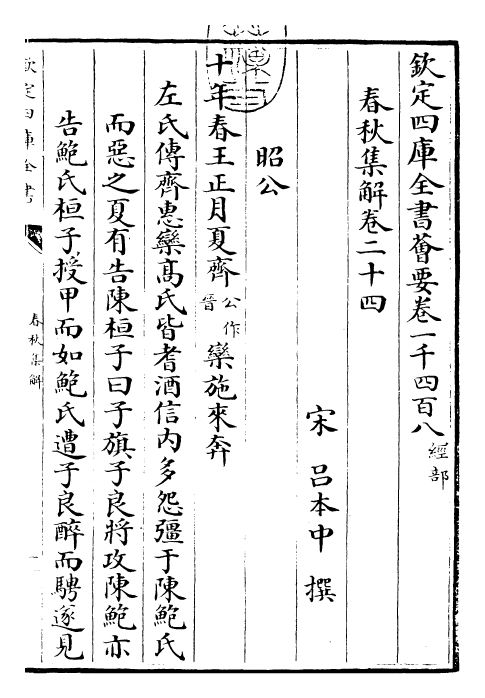 欽定四庫全書薈要卷一千四百八 經部
春秋集解卷二十四
宋 呂本中 撰
昭公
十年春王正月夏齊公作晉欒施來奔
左氏傳齊惠欒髙氏皆耆酒信内多怨彊于陳鮑氏
而惡之夏有告陳桓子曰子旗子良將攻陳鮑亦
告鮑氏桓子授甲而如鮑氏遭子良醉而騁遂見
欽定四庫全書
春秋集解